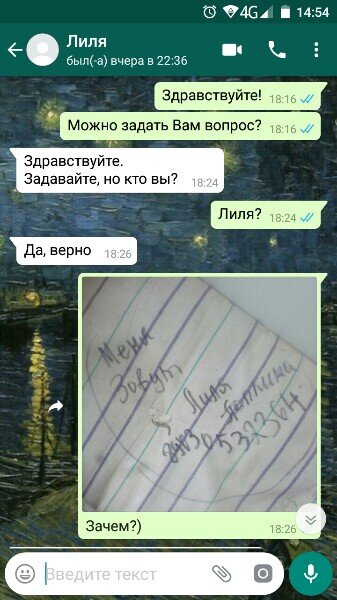 14:54
4G
Лиля
был(-а) вчера в 22:36
Здравствуйте!
18:16
Можно задать Вам вопрос?
18:16
Здравствуйте.
Задавайте, но кто вы?
18:24
Лиля?
18:24
Да, верно
18:26
Меня
Зовут
Лиля
Зачем?)
18:26
Введите текст